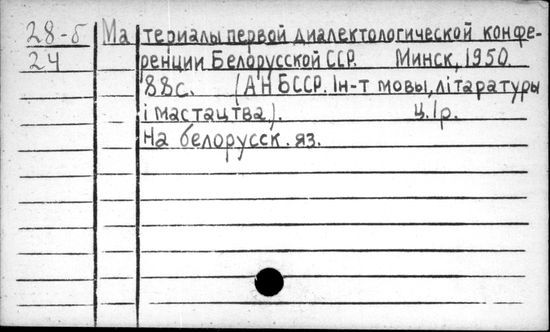 28-б Материалы первой диалектологической конфе-
24 ренции Белорусской ССР. Минск, 1950.
88с. (АН БССР. Ін-т мовы, літаратуры
і мастацтва). ц. 1р.
На белорусск. яз.